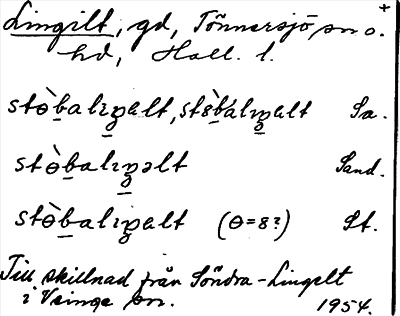 +
Lingilt, gd, Tönnersjö sn o.
hd, Hall. l.
stɵ̀balıngalt, stɞ̀bálıngalt Sa.
stɵ̀balıngəlt Sand.
stɵ̀balıngalt (ɵ=8?) St.
Till skillnad från Söndra-Lingelt
i Veinge sn. 1954.